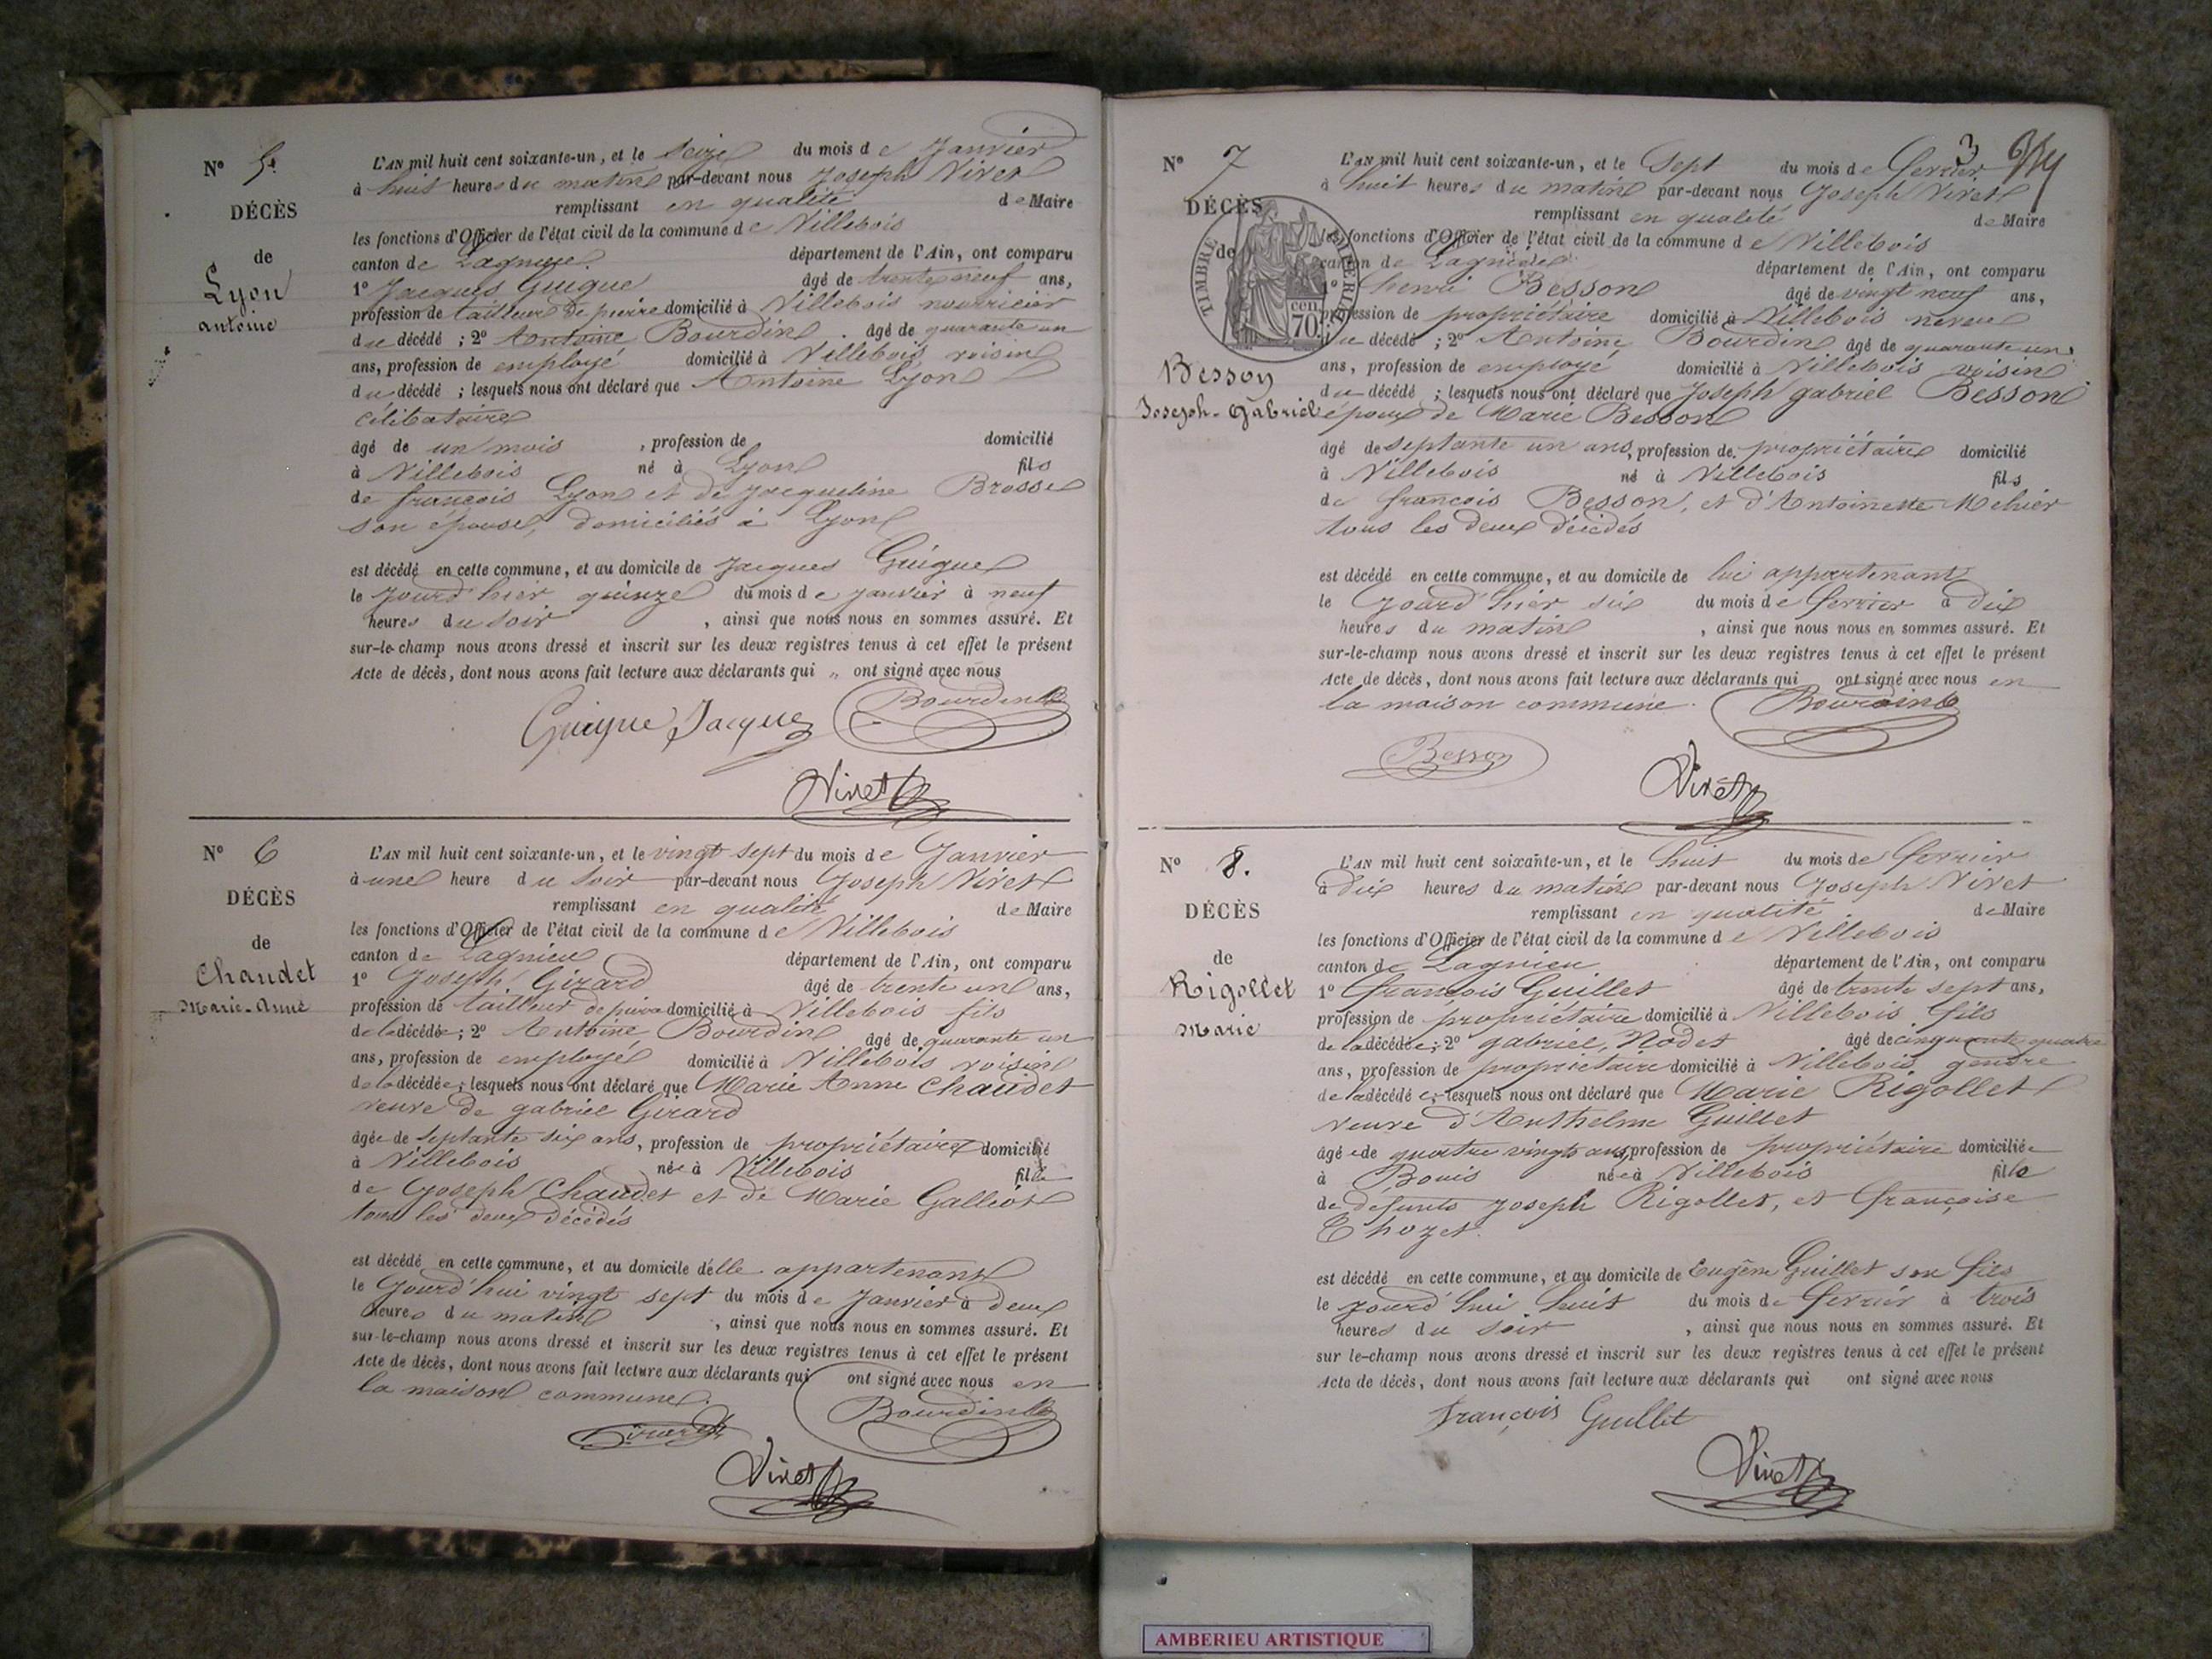 N° 5.
DÉCÈS
de
Lyon
antoine
L'AN mil huit cent soixante-un, et le seize du mois de Janvier
à huit heures du matin par-devant nous Joseph Vivet
remplissant en qualité de Maire
les fonctions d'Officier de l'état civil de la commune de Villebois
canton de Lagnieu. département de l'Ain, ont comparu
1° Jacques Guigue âgé de trente neuf ans,
profession de tailleur de pierre domicilié à Villebois nourricier
du décédé ; 2° Antoine Bourdin . âgé de quarante un
ans, profession de employé domicilié à Villebois voisin
du décédé ; lesquels nous ont déclaré que Antoine Lyon
célibataire
âgé de un mois , profession de domicilié
à Villebois né à Lyon fils
de françois Lyon et de Jacqueline Brosse
son épouse, domiciliés à Lyon
est décédé en cette commune, et au domicile de Jacques Guigue
le jourd'hier quinze du mois de janvier à neuf
heures du soir , ainsi que nous nous en sommes assuré. Et
sur-le-champ nous avons dressé et inscrit sur les deux registres tenus à cet effet le présent
Acte de décès, dont nous avons fait lecture aux déclarants qui „ ont signé avec nous
Guigue Jacque Bourdin
Vivet
N° 6
DÉCÈS
de
Chaudet
Marie-Anne
L'AN mil huit cent soixante-un, et le vingt sept du mois de Janvier
à une heure du soir par-devant nous Joseph Vivet
remplissant en qualité de Maire
les fonctions d'Officier de l'état civil de la commune de Villebois
canton de Lagnieu département de l'Ain, ont comparu
1° Joseph Girard âgé de trente un ans,
profession de tailleur de pierre domicilié à Villebois fils
de la décédée ; 2° Antoine Bourdin âgé de quarante un
ans, profession de employé domicilié à Villebois voisin
de la décédée ; lesquels nous ont déclaré que Marie Anne Chaudet
veuve de gabriel Girard
âgée de septante six ans, profession de propriétaire domicilié
à Villebois née à Villebois fille
de Joseph Chaudet et de Marie Galliot
tous les deux décédés
est décédé en cette commune, et au domicile d'elle appartenant
le Jourd'hui vingt sept du mois de Janvier à deux
heures du matin , ainsi que nous nous en sommes assuré. Et
sur-le-champ nous avons dressé et inscrit sur les deux registres tenus à cet effet le présent
Acte de décès, dont nous avons fait lecture aux déclarants qui ont signé avec nous en
la maison commune.
Girard Bourdin
Vivet
3
N° 7
DÉCÈS
de
TIMBRE IMPÉRIAL
70 cen
Besson
Joseph-Gabriel
L'AN mil huit cent soixante-un, et le Sept du mois de fevrier
à huit heures du matin par-devant nous Joseph Vivet
remplissant en qualité de Maire
les fonctions d'Officier de l'état civil de la commune de Villebois
canton de Lagnieu département de l'Ain, ont comparu
1° henri Besson âgé de vingt neuf ans,
profession de propriétaire domicilié à Villebois neveu
du décédé ; 2° Antoine Bourdin âgé de quarante un
ans, profession de employé domicilié à Villebois voisin
du décédé ; lesquels nous ont déclaré que Joseph gabriel Besson
époux de Marie Besson
âgé de septante un ans, profession de propriétaire domicilié
à Villebois né à Villebois fils
de françois Besson, et d'Antoinette Mehier
tous les deux décédés
est décédé en cette commune, et au domicile de lui appartenant
le Jourd'hier six du mois de fevrier à dix
heures du matin , ainsi que nous nous en sommes assuré. Et
sur-le-champ nous avons dressé et inscrit sur les deux registres tenus à cet effet le présent
Acte de décès, dont nous avons fait lecture aux déclarants qui ont signé avec nous en
la maison commune. Bourdin
Besson
Vivet
N° 8.
DÉCÈS
de
Rigollet
Marie
L'AN mil huit cent soixante-un, et le huit du mois de fevrier
à dix heures du matin par-devant nous Joseph Vivet
remplissant en qualité de Maire
les fonctions d'Officier de l'état civil de la commune de Villebois
canton de Lagnieu département de l'Ain, ont comparu
1° françois Guillet âgé de trente sept ans,
profession de propriétaire domicilié à Villebois fils
de la décédée ; 2° gabriel Nodet âgé de cinquante quatre
ans, profession de propriétaire domicilié à Villebois gendre
de la décédée ; lesquels nous ont déclaré que Marie Rigollet
veuve d'Anthelme Guillet
âgée de quatre vingts ans, profession de propriétaire domiciliée
à Bouis née à Villebois fille
de defunts Joseph Rigollet, et françoise
Thozet.
est décédé en cette commune, et au domicile de Eugène Guillet son fils
le jourd'hui huit du mois de fevrier à trois
heures du soir , ainsi que nous nous en sommes assuré. Et
sur le-champ nous avons dressé et inscrit sur les deux registres tenus à cet effet le présent
Acte de décès, dont nous avons fait lecture aux déclarants qui ont signé avec nous
françois Guillet
Vivet
AMBERIEU ARTISTIQUE